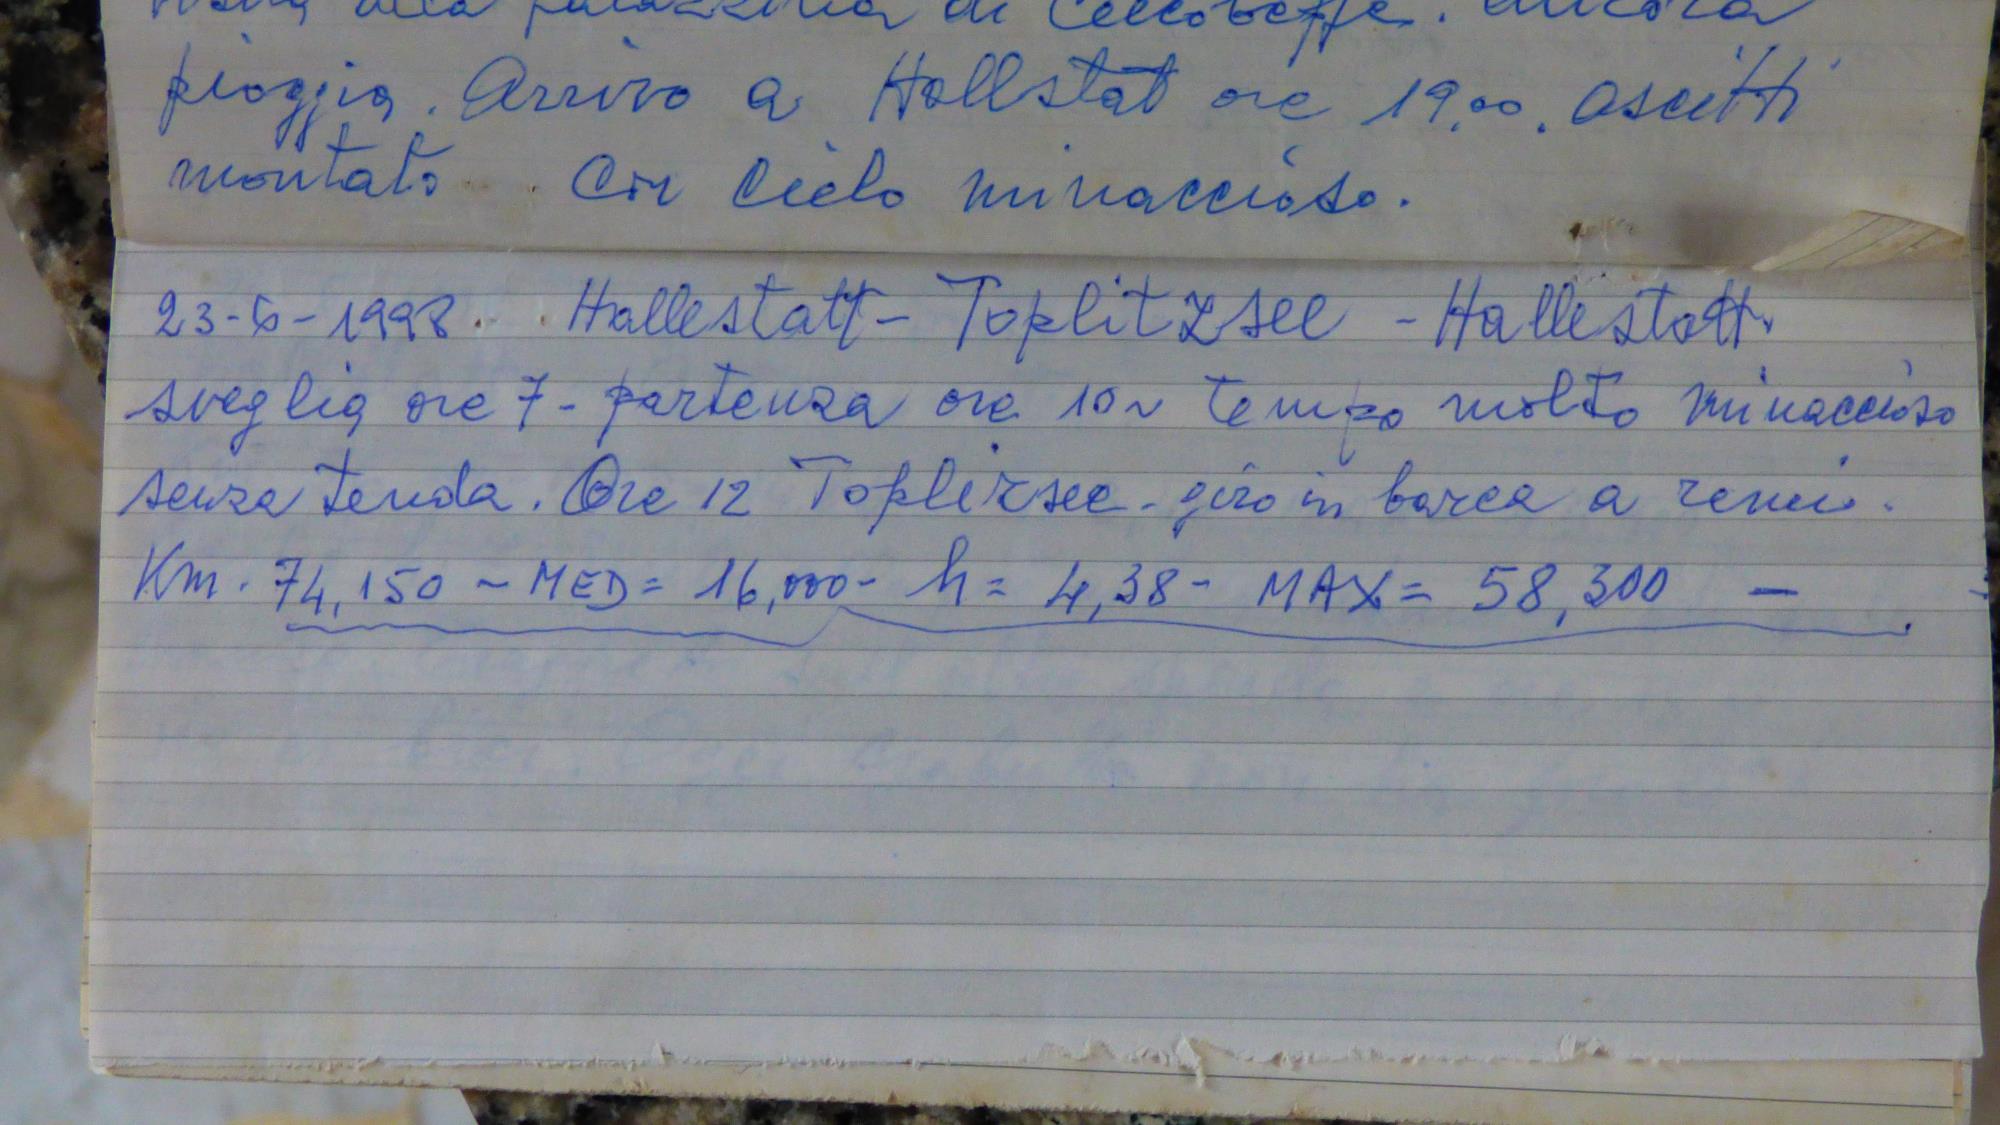 alla palazzina di Ceccobeppe. Ancora
pioggia. Arrivo a Hallstat ore 19,00. asciutti
montato con cielo minaccioso.
23-6-1998. Hallestatt - Toplitzsee - Hallestatt.
sveglia ore 7 - partenza ore 10 ~ tempo molto minaccioso
senza tenda. Ore 12 Toplizsee - giro in barca a remi.
Km. 74,150 ~ MED = 16,000 - h = 4,38 - MAX = 58,300 -